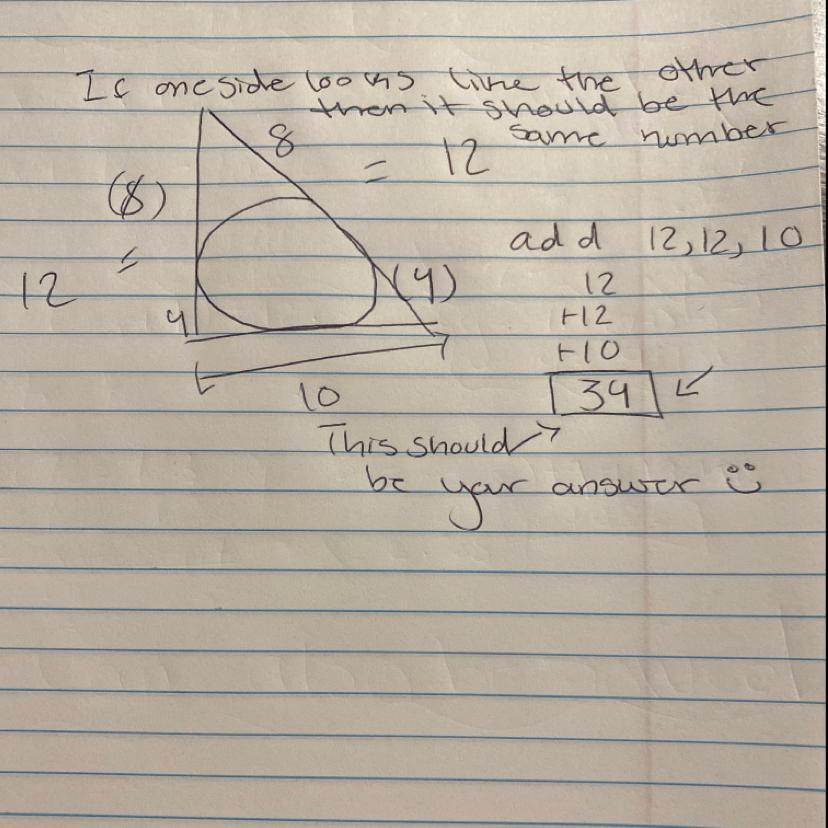 If one side looks like the other
then it should be the
same number
8
= 12
(8)
add 12, 12, 10
12 =
(4)
12
4
+12
+10
10
34
This should
be your answer